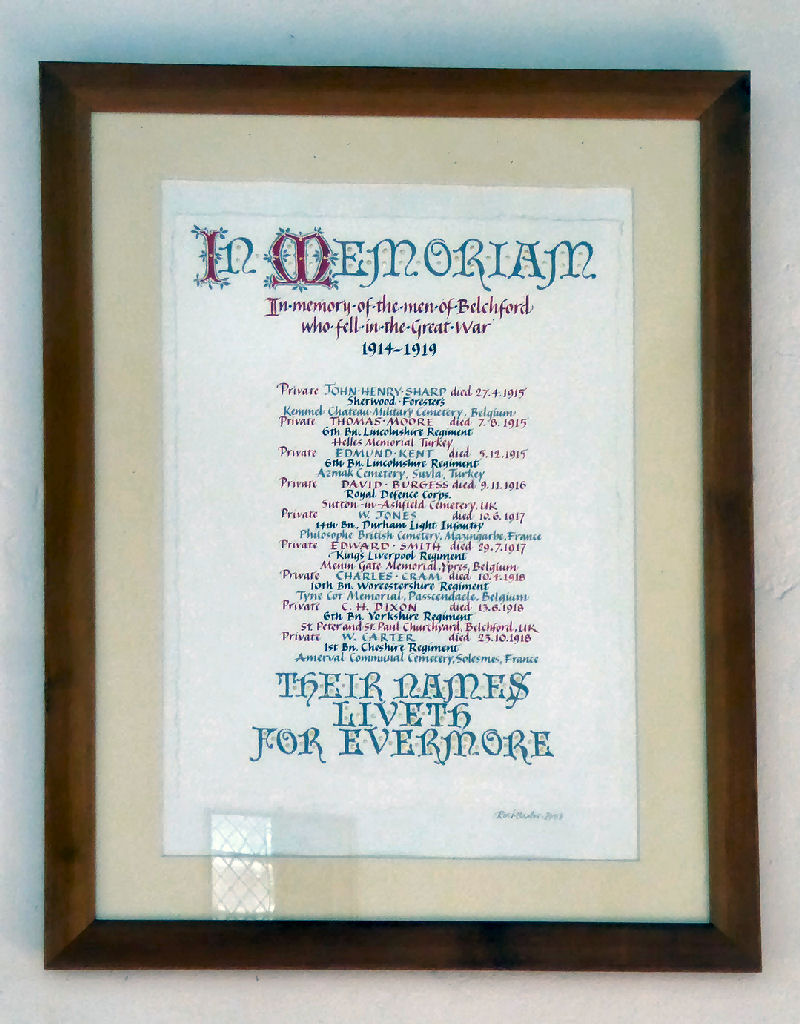 IN MEMORIAM
In·memory·of·the·men·of·Belchford
who·fell·in·the·Great·War
1914-1919
Private JOHN·HENRY·SHARP died 27.4.1915
Sherwood·Foresters
Kemmel·Chateau·Military Cemetery, Belgium
Private THOMAS·MOORE died 7.8.1915
6th Bn. Lincolnshire Regiment
Helles Memorial Turkey
Private EDMUND·KENT died 5.12.1915
6th Bn. Lincolnshire Regiment
Azmak Cemetery, Suvla, Turkey
Private DAVID·BURGESS died 9.11.1916
Royal Defence Corps.
Sutton-in-Ashfield Cemetery, UK
Private W. JONES died 10.6.1917
14th Bn. Durham Light Infantry
Philosophe British Cemetery, Mazingarbe, France
Private EDWARD·SMITH died 29.7.1917
Kings Liverpool Regiment
Menin Gate Memorial, Ypres, Belgium
Private CHARLES·CRAM died 10.4.1918
10th Bn. Worcestershire Regiment
Tyne Cot Memorial, Passcendaele, Belgium
Private C. H. DIXON died 13.6.1918
6th Bn. Yorkshire Regiment
St. Peter and St. Paul Churchyard, Belchford, UK
Private W. CARTER died 23.10.1918
1st Bn. Cheshire Regiment
Amerval Communal Cemetery, Solesmes, France
THEIR NAMES
LIVETH
FOR EVERMORE